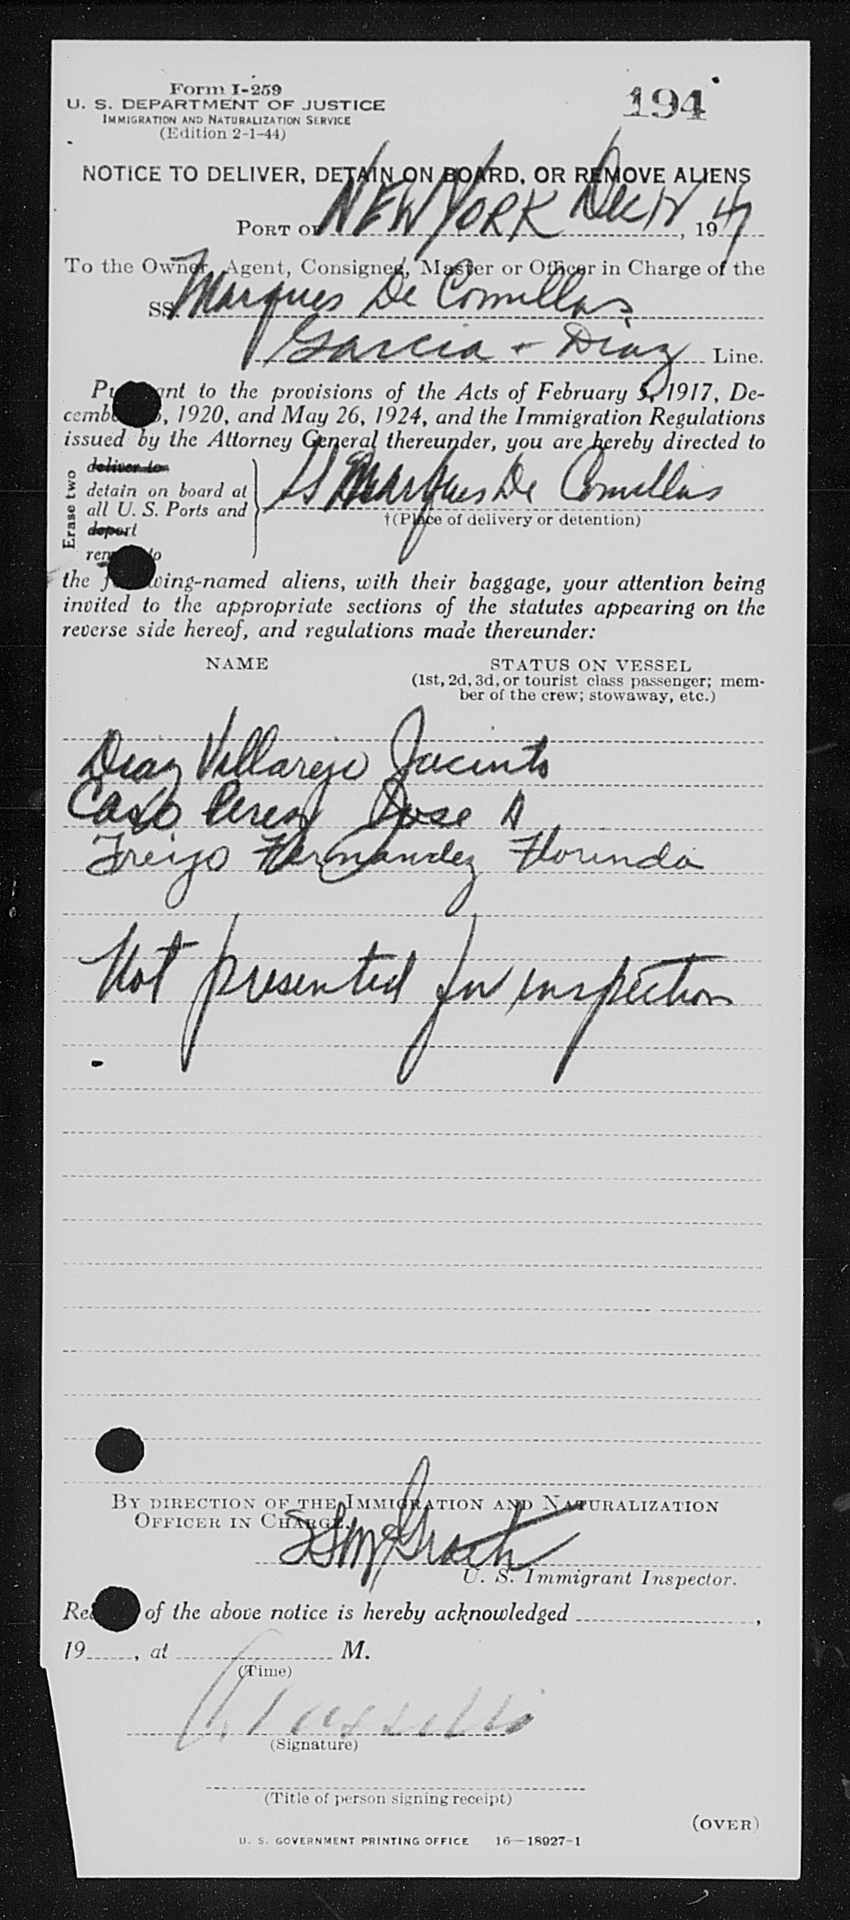 Form I-259
U. S. DEPARTMENT OF JUSTICE
IMMIGRATION AND NATURALIZATION SERVICE
(Edition 2-1-44)
194
NOTICE TO DELIVER, DETAIN ON BOARD, OR REMOVE ALIENS
PORT OF NEW YORK Dec 12, 1947
To the Owner, Agent, Consignee, Master or Officer in Charge of the
SS Marques De Comillas
Garcia + Diaz Line.
Pursuant to the provisions of the Acts of February 5, 1917, De-
cember 26, 1920, and May 26, 1924, and the Immigration Regulations
issued by the Attorney General thereunder, you are hereby directed to
Erase two
deliver to
detain on board at
all U. S. Ports and
deport
remove to
SS Marques De Comillas
†(Place of delivery or detention)
the following-named aliens, with their baggage, your attention being
invited to the appropriate sections of the statutes appearing on the
reverse side hereof, and regulations made thereunder:
NAME STATUS ON VESSEL
(1st, 2d, 3d, or tourist class passenger; mem-
ber of the crew; stowaway, etc.)
Diaz Villarejo Jacinto
Caso Perez Jose A
Freijo Hernandez Florinda
Not presented for inspection
BY DIRECTION OF THE IMMIGRATION AND NATURALIZATION
OFFICER IN CHARGE.
U. S. Immigrant Inspector.
Receipt of the above notice is hereby acknowledged ,
19 , at M.
(Time)
(Signature)
(Title of person signing receipt)
(OVER)
U. S. GOVERNMENT PRINTING OFFICE 16—18927-1